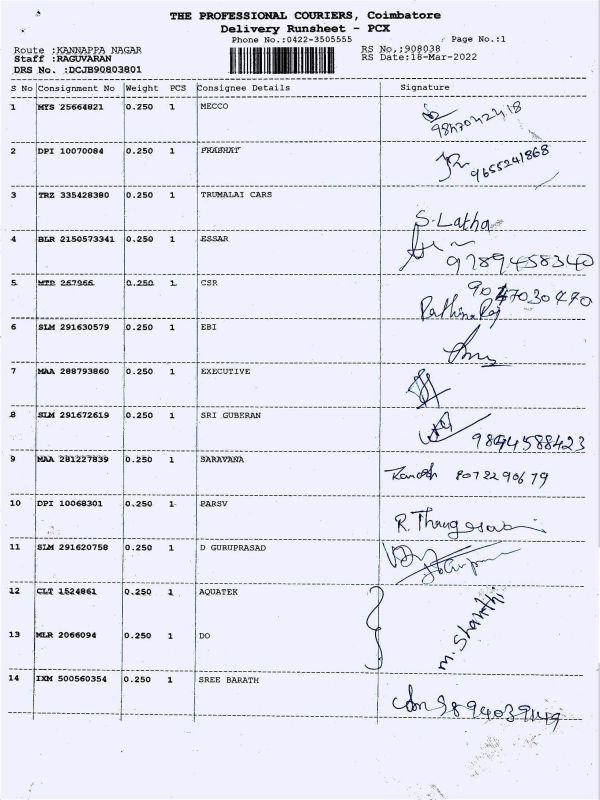 THE PROFESSIONAL COURIERS, Coimbatore
Delivery Runsheet - PCX
Phone No.:0422-3505555 Page No.:1
Route :KANNAPPA NAGAR RS No,:908038
Staff :RAGUVARAN RS Date:18-Mar-2022
DRS No. :DCJB90803801
S No Consignment No Weight PCS Consignee Details Signature
1 MYS 25664821 0.250 1 MECCO
2 DPI 10070084 0.250 1 PRABHAT 9655241868
3 TRZ 335428380 0.250 1 TRUMALAI CARS S. Latha
4 BLR 2150573341 0.250 1 ESSAR 9789458340
5 MTP 267966 0.250 1 CSR
6 SLM 291630579 0.250 1 EBI
7 MAA 288793860 0.250 1 EXECUTIVE
8 SLM 291672619 0.250 1 SRI GUBERAN 9894588423
9 MAA 281227839 0.250 1 SARAVANA 8072290679
10 DPI 10068301 0.250 1 PARSV
11 SLM 291620758 0.250 1 D GURUPRASAD
12 CLT 1524861 0.250 1 AQUATEK
M. Shakthi
13 MLR 2066094 0.250 1 DO
14 IXM 500560354 0.250 1 SREE BARATH 9894039149